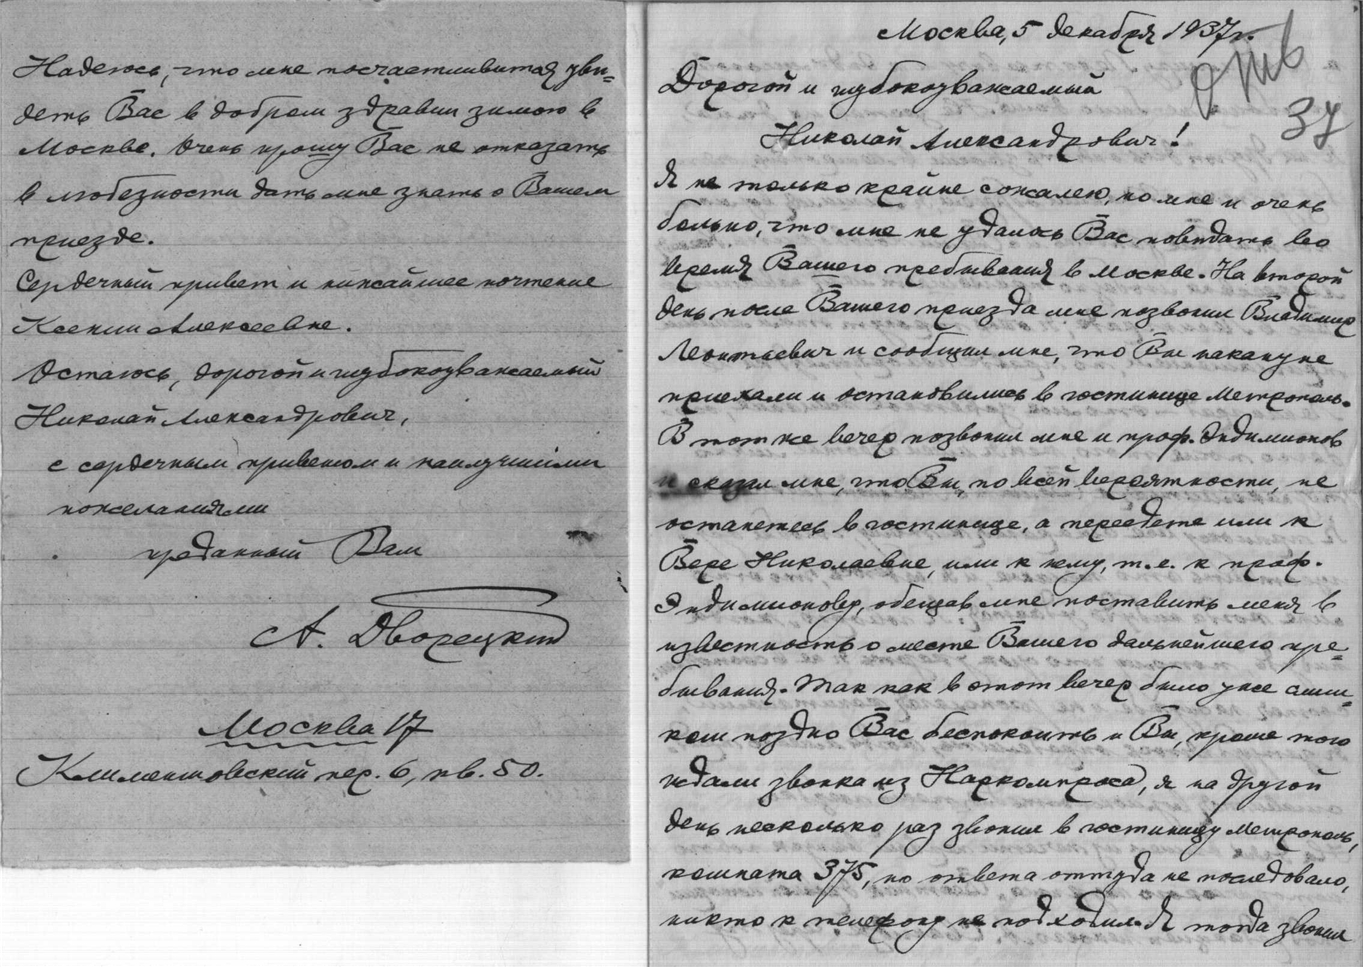 Москва, 5 декабря 1937 г.
отв
37
Дорогой и глубокоуважаемый
Николай Александрович!
Я не только крайне сожалею, но мне и очень
больно, что мне не удалось Вас повидать во
время Вашего пребывания в Москве. На второй
день после Вашего приезда мне позвонил Владимир
Леонтьевич и сообщил мне, что Вы накануне
приехали и остановились в гостинице Метрополь.
В тот же вечер позвонил мне и проф. Эндимионов
и сказал мне, что Вы, по всей вероятности, не
останетесь в гостинице, а переедете или к
Вере Николаевне, или к нему, т.е. к проф.
Эндимионову, обещав мне поставить меня в
известность о месте Вашего дальнейшего пре=
бывания. Так как в этот вечер было уже слиш=
ком поздно Вас беспокоить и Вы, кроме того
ждали звонка из Наркомпроса, я на другой
день несколько раз звонил в гостиницу Метрополь,
комната 375, но ответа оттуда не последовало,
никто к телефону не подходил. Я тогда звонил
Надеюсь, что мне посчастливится уви=
деть Вас в добром здравии зимою в
Москве. Очень прошу Вас не отказать
в любезности дать мне знать о Вашем
приезде.
Сердечный привет и нижайшее почтение
Ксении Алексеевне.
Остаюсь, дорогой и глубокоуважаемый
Николай Александрович,
с сердечным приветом и наилучшими
пожеланиями
преданный Вам
А. Дворецкий
Москва 17
Климентовский пер. 6, кв. 50.